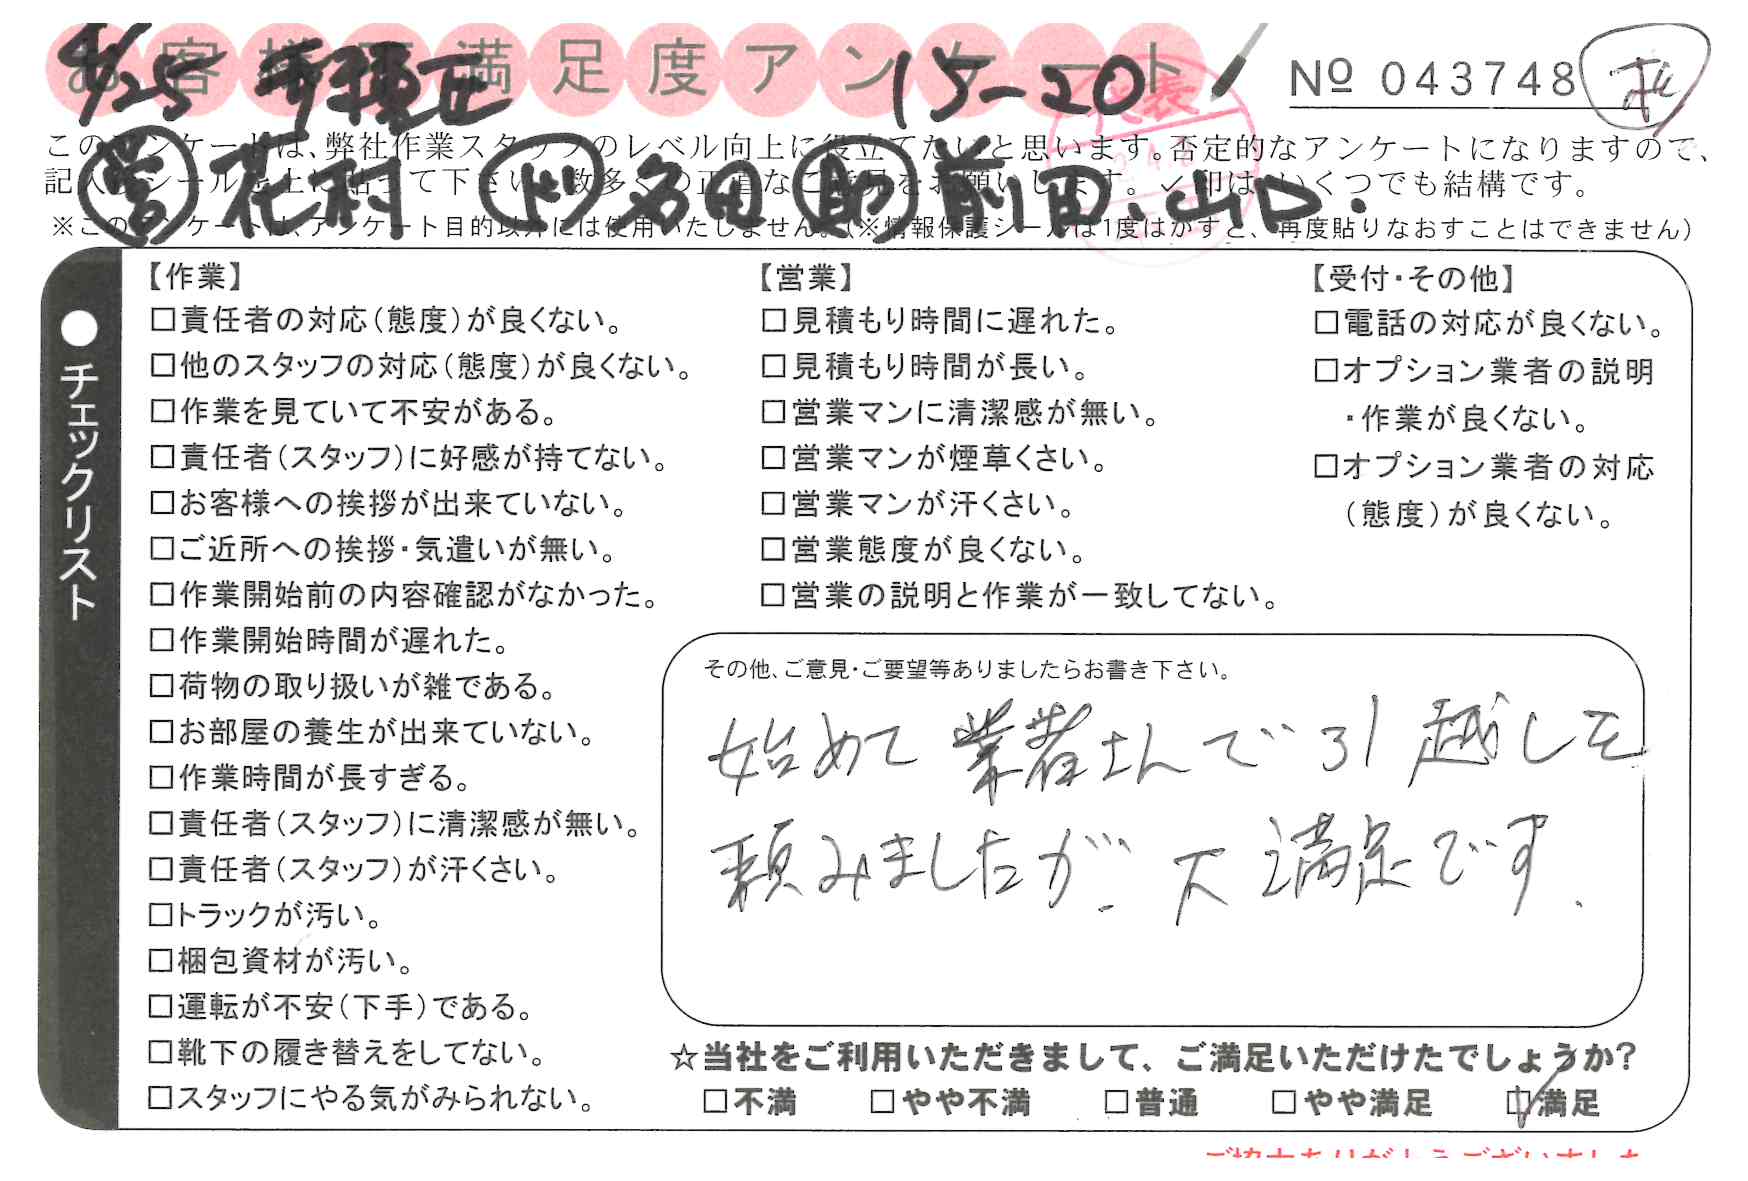 お客様不満足度アンケート
4/25
15-20
№ 043748
このアンケートは、弊社作業スタッフのレベル向上に役立てたいと思います。否定的なアンケートになりますので、
記入後シールを上に貼って下さい。数多くの正直なご意見をお願いします。✓印は、いくつでも結構です。
※このアンケートは、アンケート目的以外には使用いたしません。(※情報保護シールは1度はがすと、再度貼りなおすことはできません)
営 花村 ド 名田 助 前田、山口.
●チェックリスト
【作業】
□責任者の対応(態度)が良くない。
□他のスタッフの対応(態度)が良くない。
□作業を見ていて不安がある。
□責任者(スタッフ)に好感が持てない。
□お客様への挨拶が出来ていない。
□ご近所への挨拶・気遣いが無い。
□作業開始前の内容確認がなかった。
□作業開始時間が遅れた。
□荷物の取り扱いが雑である。
□お部屋の養生が出来ていない。
□作業時間が長すぎる。
□責任者(スタッフ)に清潔感が無い。
□責任者(スタッフ)が汗くさい。
□トラックが汚い。
□梱包資材が汚い。
□運転が不安(下手)である。
□靴下の履き替えをしてない。
□スタッフにやる気がみられない。
【営業】
□見積もり時間に遅れた。
□見積もり時間が長い。
□営業マンに清潔感が無い。
□営業マンが煙草くさい。
□営業マンが汗くさい。
□営業態度が良くない。
□営業の説明と作業が一致してない。
【受付・その他】
□電話の対応が良くない。
□オプション業者の説明
・作業が良くない。
□オプション業者の対応
(態度)が良くない。
その他、ご意見・ご要望等ありましたらお書き下さい。
始めて業者さんで引越しを
頼みましたが、大満足です.
☆当社をご利用いただきまして、ご満足いただけたでしょうか?
□不満 □やや不満 □普通 □やや満足 ☑満足
ご協力ありがとうございました